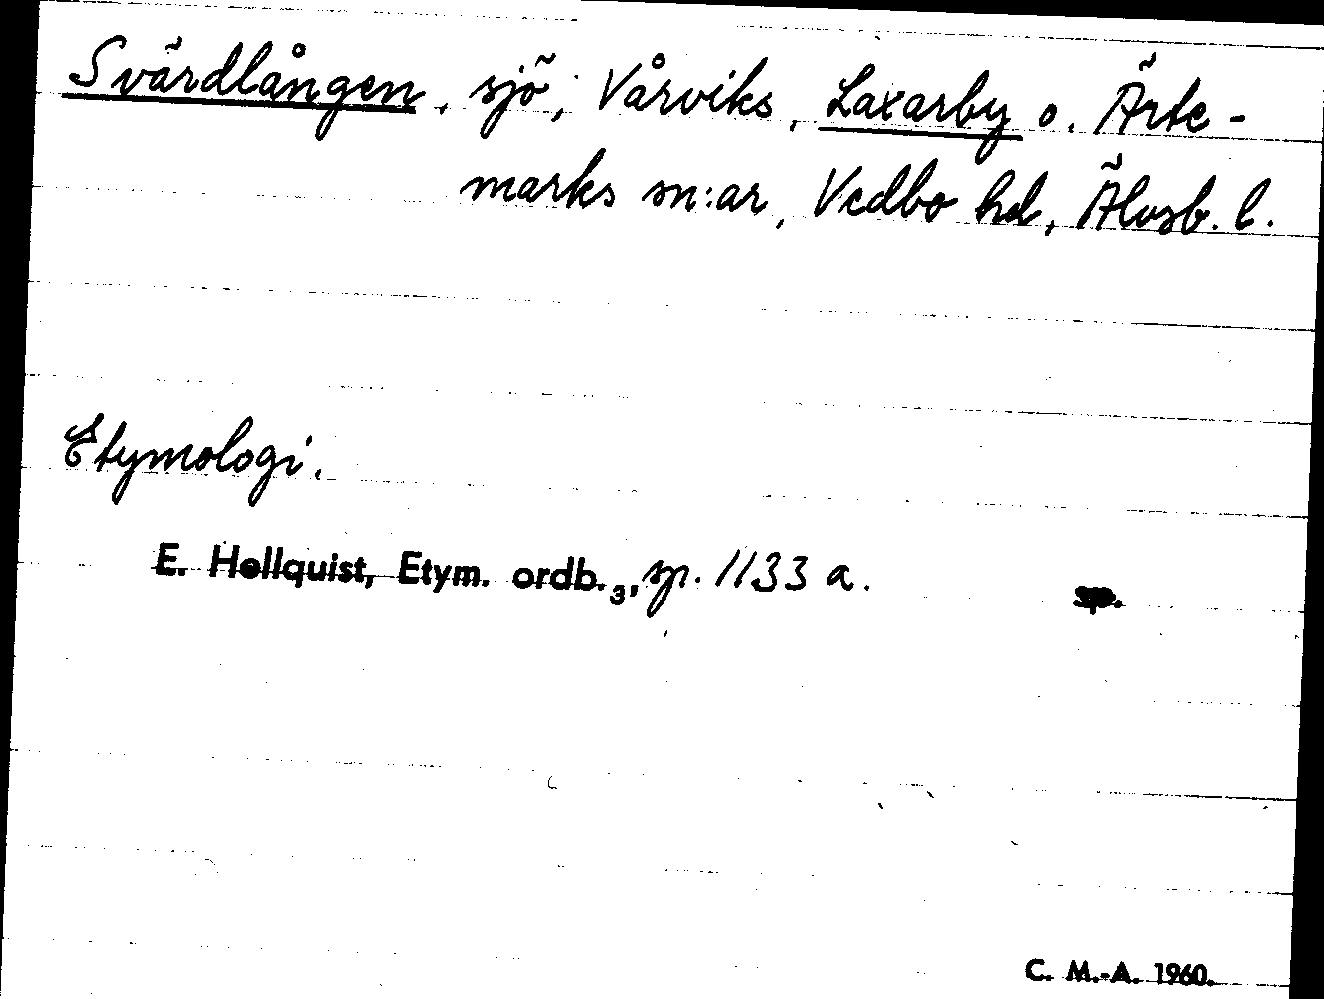 Svärdlången, sjö, Vårviks, Laxarby o. Ärte-
marks sn:ar, Vedbo hd, Älvsb. l.
Etymologi.
E. Hellquist, Etym. ordb.₃, sp. 1133 a.
C. M.-A. 1960.